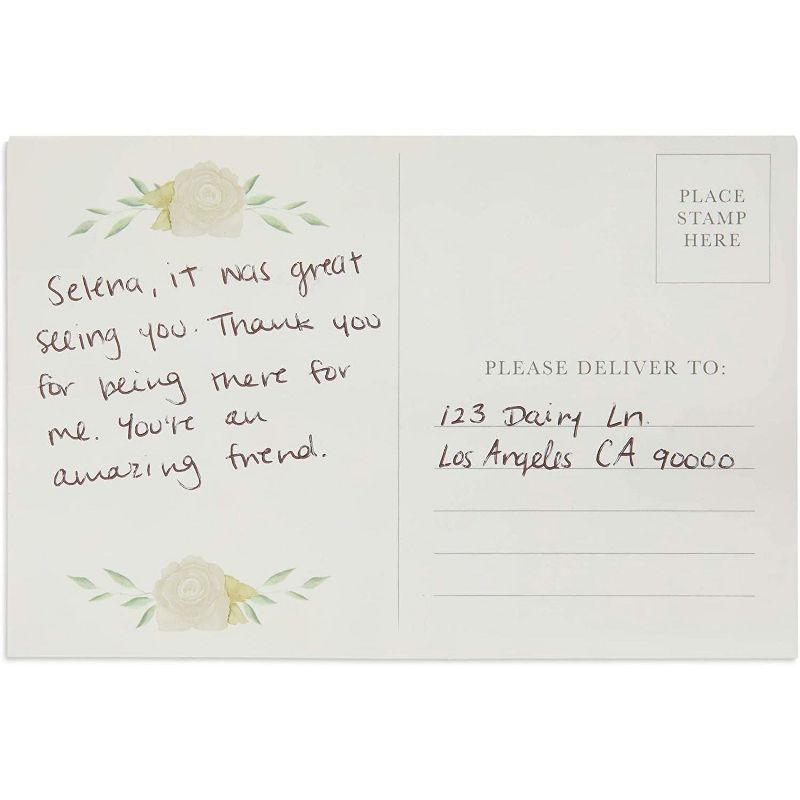 Selena, it was great
seeing you. Thank you
for being there for
me. You're an
amazing friend.
PLACE
STAMP
HERE
PLEASE DELIVER TO:
123 Dairy Ln.
Los Angeles CA 90000